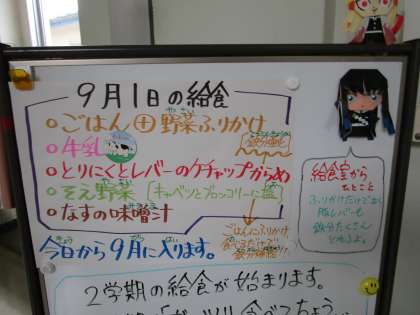 9月1日の給食
○ごはん ⊕ 野菜ふりかけ
○牛乳
○とりにくとレバーのケチャップからめ
○そえ野菜 〔キャベツとブロッコリーに塩〕
○なすの味噌汁
今日から9月に入ります。
給食室から
ひとこと
ふりかけだけで
レバーも
鉄分たくさん
とれるよ。
ごはんにふりかけ
食べるだけで
2学期の給食が始まります。